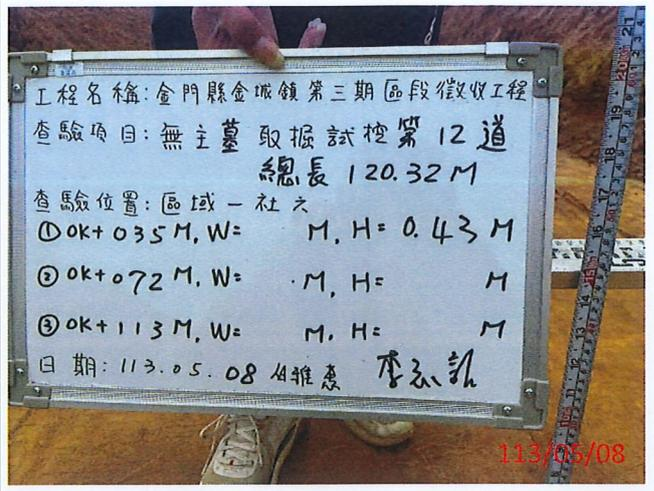 工程名稱:金門縣金城鎮第三期區段徵收工程
查驗項目:無主墓 取掘試挖第12道
總長 120.32M
查驗位置:區域一社六
①0K+035M, W= M, H= 0.43 M
②0K+072M, W= M, H= M
③0K+113M, W= M, H= M
日期:113.05.08
113/05/08